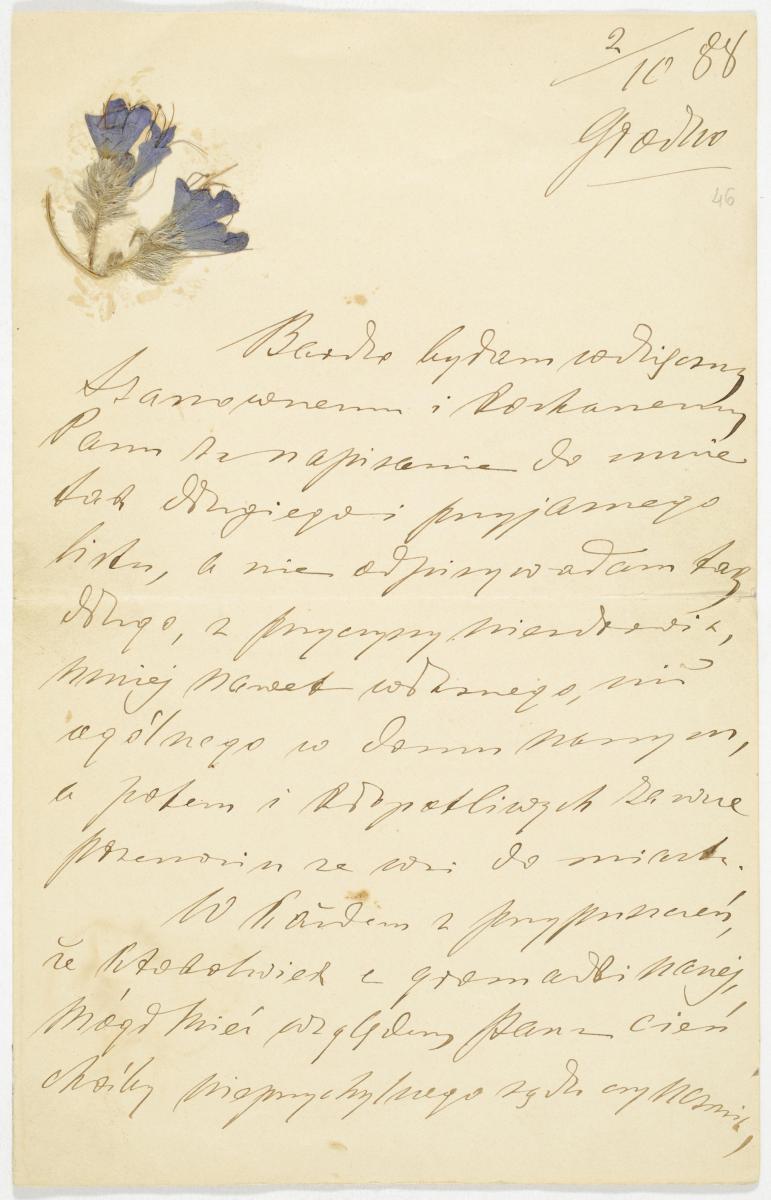 2/10 88
Grodno
46
Bardzo byłam wdzięczną
Szanownemu i Kochanemu
Panu za napisanie do mnie
tak długiego i przyjaznego
listu, a nie odpisywałam tak
długo, z przyczyny niezdrowia,
mniej nawet własnego, niż
ogólnego w domu naszym,
a potem i kłopotliwych zawsze
przenosin ze wsi do miasta.
W każdem z przypuszczeń,
że ktokolwiek z gromadki naszej,
mógł mieć względem Pana cień
choćby nieprzychylnego sądu czy